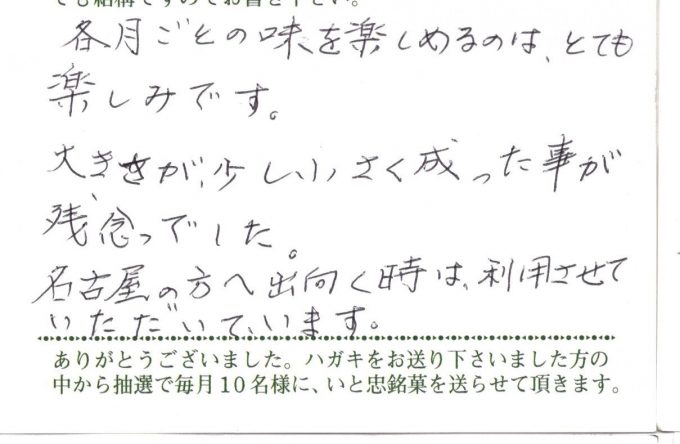 でも結構ですのでお書き下さい。
各月ごとの味を楽しめるのは、とても
楽しみです。
大きさが、少し小さく成った事が
残念っでした。
名古屋の方へ出向く時は、利用させて
いただいています。
ありがとうございました。ハガキをお送り下さいました方の
中から抽選で毎月10名様に、いと忠銘菓を送らせて頂きます。